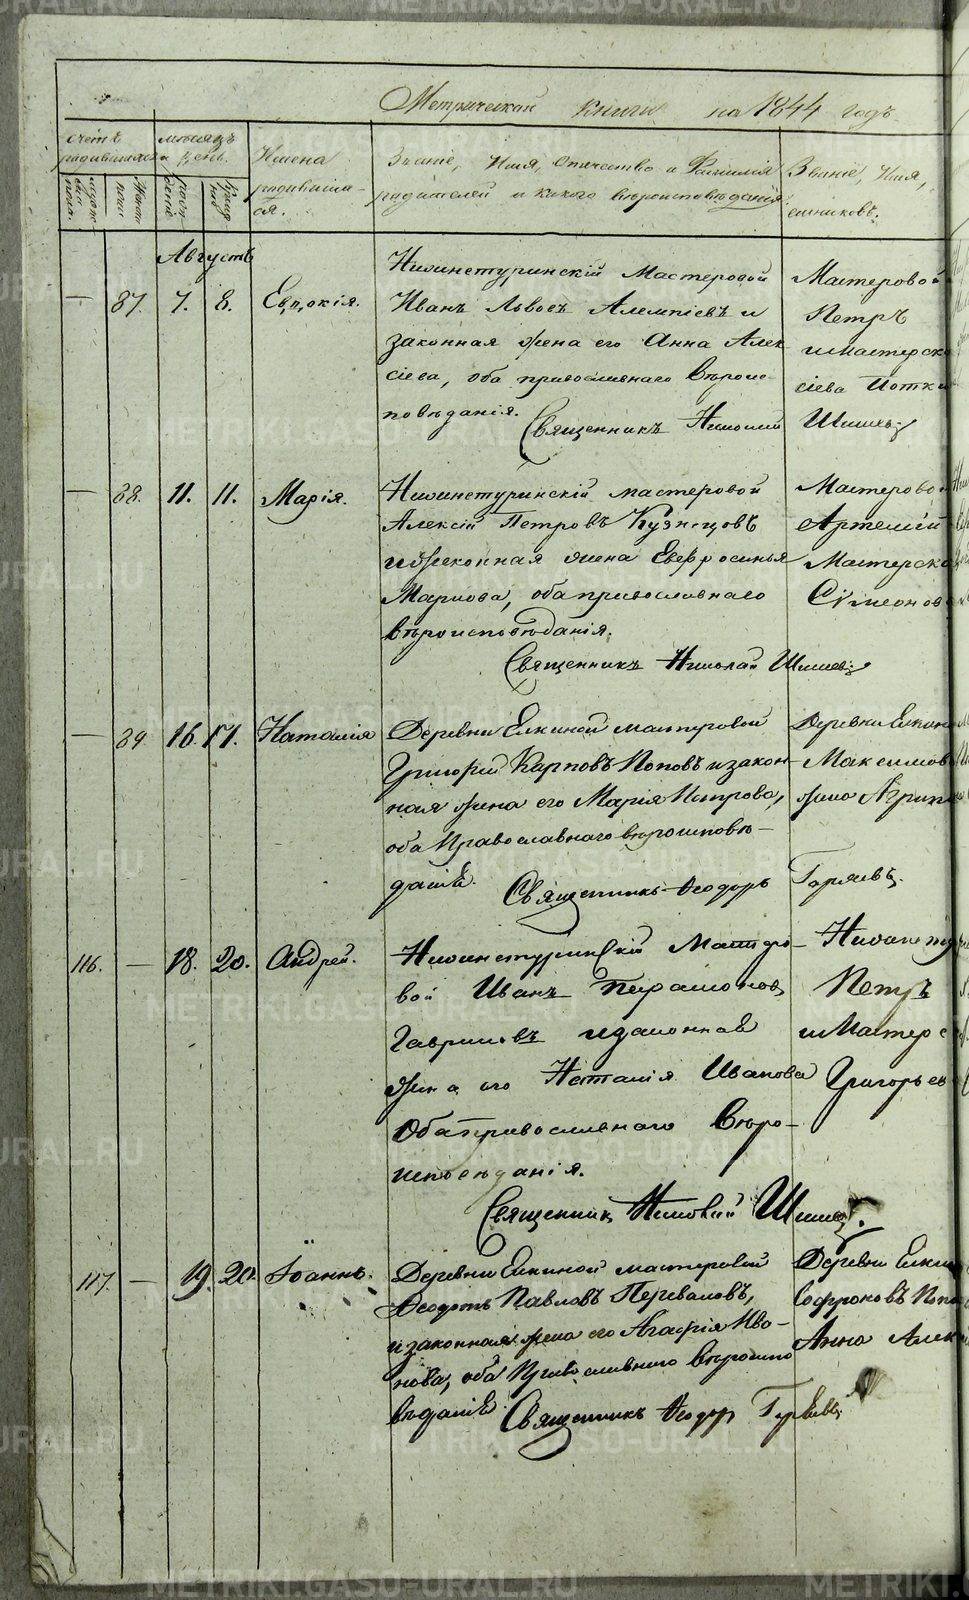 Метрической книги на 1844 годъ
счетъ родившихся
мѣсяцъ и день.
Имена родившихся.
Званіе, Имя, Отчество и Фамилія родителей и какого вѣроисповѣданія.
Званіе, Имя,
Августъ
— 87. 7. 8. Евдокія.
Нижнетуринскій Мастеровой
Иванъ Львовъ и
законная жена его Анна Алек
сіева, оба православнаго Вѣроис
повѣданія.
Священникъ Николай Шишевъ
Мастеровой
Петръ
и Мастерск
сіева
— 88. 11. 11. Марія.
Нижнетуринскій мастеровой
Алексій Петровъ Кузнецовъ
жена Евфросинья
Маркова, оба православнаго
вѣроисповѣданія.
Священникъ Николай Шишевъ
Мастеровой
Артемій
Мастерска
Симеонов
— 89. 16. 17. Наталія
Деревни Елкиной мастеровой
Григорій Карповъ Поповъ и закон-
ная жена его Марія Петрова,
оба Православнаго вѣроисповѣ-
данія.
Священникъ Ѳеодоръ Горяевъ.
Деревни Елкин
Максимов
жена Агрип
116. — 18. 20. Андрей.
Нижнетуринскій Мастеро-
вой Иванъ
Гавриловъ и законная
жена его Наталія Иванова
Оба православнаго Вѣро-
исповѣданія.
Священникъ Николай Шишевъ.
Нижнетур
Петръ
и Мастерс
Григорьев
117. — 19. 20. Іоаннъ.
Деревни Елкиной мастеровой
Ѳеодотъ Павловъ Переваловъ,
и законная жена его Агафія Ива-
нова, оба Православнаго Вѣроиспо
вѣданія
Священникъ Ѳеодоръ Горяевъ
Деревни Елки
Софроновъ Попо
Анна Алек
METRIKI.GASO-URAL.RU